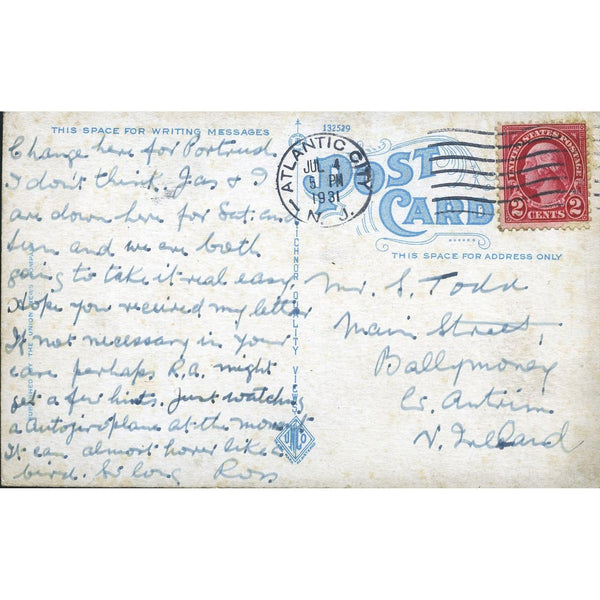 THIS SPACE FOR WRITING MESSAGES
132529
Change here for Portrush
I don't think. Jas & I
are down here for Sat. and
Sun and we are both
going to take it real easy
Hope you recieved my letter
If not necessary in your
care perhaps R.A. might
get a few hints. Just watching
a Autogiroplane at the moment
It can almost hover like a
bird. So long Ross
ATLANTIC CITY
JUL 4
5 PM
1931
N. J.
POST
CARD
THIS SPACE FOR ADDRESS ONLY
UNITED STATES POSTAGE
2 CENTS 2
Mr. S. Todd
Main Street,
Ballymoney
Co. Antrim
N. Ireland
TICHNOR QUALITY VIEWS
THE UNION NEWS COMPANY